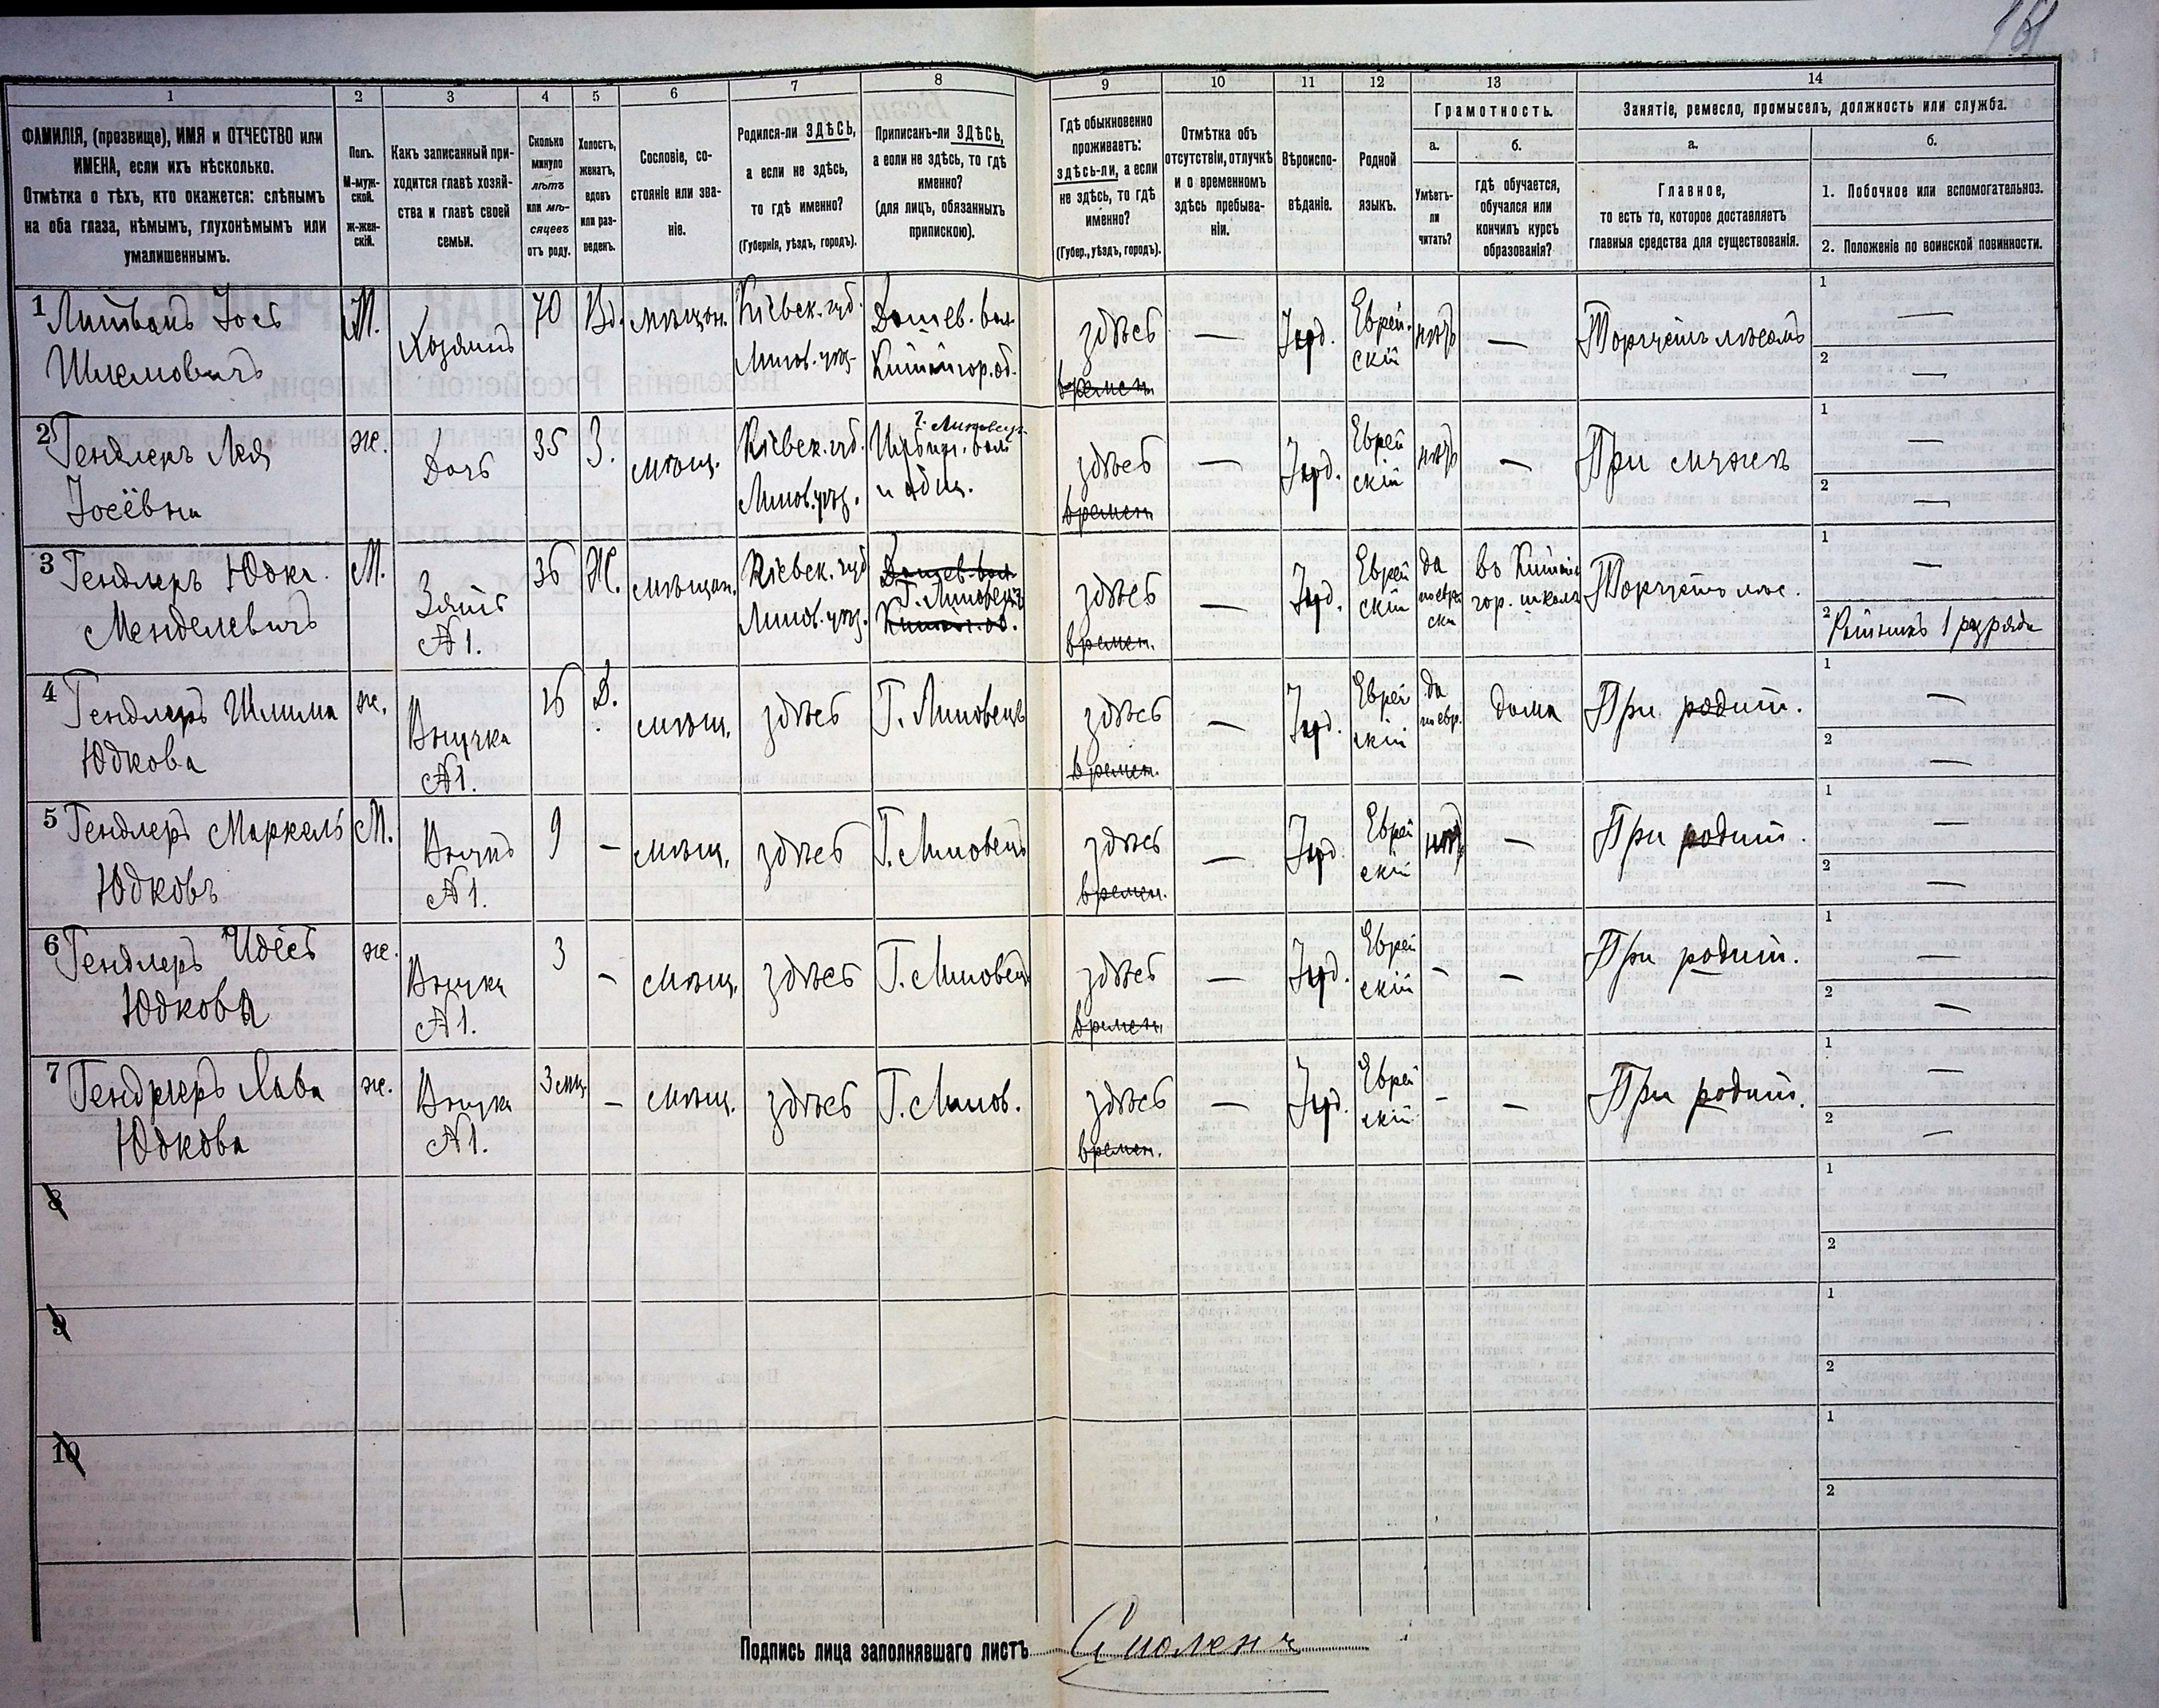 161
1
2
3
4
5
6
7
8
9
10
11
12
13
14
ФАМИЛІЯ, (прозвище), ИМЯ и ОТЧЕСТВО или
ИМЕНА, если ихъ нѣсколько.
Отмѣтка о тѣхъ, кто окажется: слѣпымъ
на оба глаза, нѣмымъ, глухонѣмымъ или
умалишеннымъ.
Полъ.
М-муж-
ской.
ж-жен-
скій.
Какъ записанный при-
ходится главѣ хозяй-
ства и главѣ своей
семьи.
Сколько
минуло
лѣтъ
или мѣ-
сяцевъ
отъ роду.
Холостъ,
женатъ,
вдовъ
или раз-
веденъ.
Сословіе, со-
стояніе или зва-
ніе.
Родился-ли ЗДѢСЬ,
а если не здѣсь,
то гдѣ именно?
(Губернія, уѣздъ, городъ).
Приписанъ-ли ЗДѢСЬ,
а если не здѣсь, то гдѣ
именно?
(для лицъ, обязанныхъ
припискою).
Гдѣ обыкновенно
проживаетъ:
здѣсь-ли, а если
не здѣсь, то гдѣ
именно?
(Губер., уѣздъ, городъ).
Отмѣтка объ
отсутствіи, отлучкѣ
и о временномъ
здѣсь пребыва-
ніи.
Вѣроиспо-
вѣданіе.
Родной
языкъ.
Грамотность.
а.
Умѣетъ-
ли
читать?
б.
гдѣ обучается,
обучался или
кончилъ курсъ
образованія?
Занятіе, ремесло, промыселъ, должность или служба.
а.
Главное,
то есть то, которое доставляетъ
главныя средства для существованія.
б.
1. Побочное или вспомогательноз.
2. Положеніе по воинской повинности.
1 Литванъ Іосъ
Шлемовичъ
М.
Хозяинъ
70
Вд.
мѣщан.
Кіевск. губ.
Липов. уѣз.
Дашев. вол.
здѣсь
времен.
—
Іуд.
Еврей-
скій
нѣтъ
—
Торгуетъ лѣсомъ
1 —
2 —
2 Гендлеръ Лея
Іосёвна
ж.
Дочь
35
З.
мѣщ.
Кіевск. губ.
Липов. уѣз.
Г. Липовец
здѣсь
времен.
—
Іуд.
Еврей
скій
нѣтъ
—
При мужѣ
1 —
2 —
3 Гендлеръ Юдка
Менделевичъ
М.
Зять
№ 1.
36
Ж.
мѣщан.
Кіевск. губ
Липов. уѣз.
Дашев. вол.
Г. Липовецъ
здѣсь
времен.
—
Іуд.
Еврей
скій
да
по евр.
ски
гор. школѣ
Торгуетъ лѣс.
1 —
2 Ратникъ 1 разряда
4 Гендлеръ Шлима
Юдкова
ж.
Внучка
№ 1.
16
Д.
мѣщ.
здѣсь
Г. Липовецъ
здѣсь
времен.
—
Іуд.
Еврей
скій
да
по евр.
дома
При родит.
1 —
2 —
5 Гендлеръ Маркель
Юдковъ
М.
Внукъ
№ 1.
9
—
мѣщ.
здѣсь
Г. Липовецъ
здѣсь
времен.
—
Іуд.
Еврей
скій
нѣтъ
—
При родит.
1 —
2 —
6 Гендлеръ Идесъ
Юдкова
ж.
Внучка
№ 1.
3
—
мѣщ.
здѣсь
Г. Липовецъ
здѣсь
времен.
—
Іуд.
Еврей
скій
—
—
При родит.
1 —
2 —
7 Гендлеръ Хава
Юдкова
ж.
Внучка
№ 1.
3 мѣц
—
мѣщ.
здѣсь
Г. Липов.
здѣсь
времен.
—
Іуд.
Еврей
скій
—
—
При родит.
1 —
2 —
8
1
2
9
1
2
10
1
2
Подпись лица заполнявшаго листъ